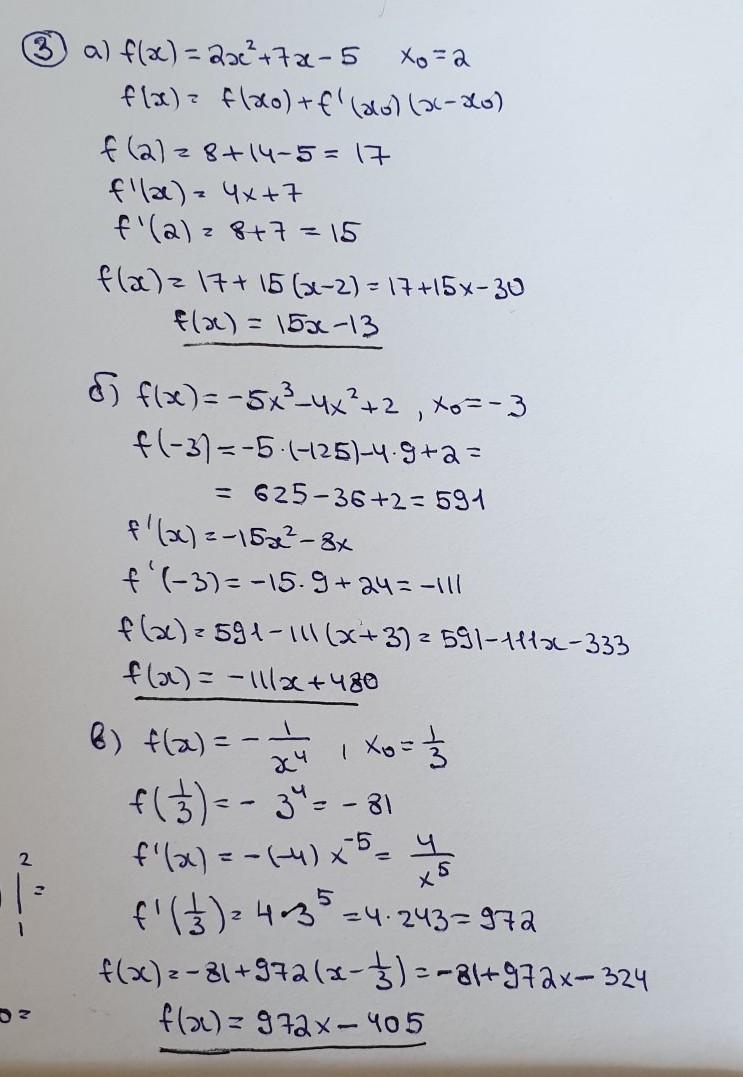 ③ а) f(x) = 2x²+7x−5   x₀=2
f(x) = f(x₀)+f'(x₀)(x−x₀)
f(2) = 8+14−5 = 17
f'(x) = 4x+7
f'(2) = 8+7 = 15
f(x) = 17+15(x−2) = 17+15x−30
f(x) = 15x−13
б) f(x) = −5x³−4x²+2, x₀=−3
f(−3) = −5·(−125)−4·9+2 =
= 625−36+2 = 591
f'(x) = −15x²−8x
f'(−3) = −15·9+24 = −111
f(x) = 591−111(x+3) = 591−111x−333
f(x) = −111x+480
в) f(x) = −1/x⁴, x₀=1/3
f(1/3) = −3⁴ = −81
f'(x) = −(−4)x⁻⁵ = 4/x⁵
2
f'(1/3) = 4·3⁵ = 4·243 = 972
| =
1
f(x) = −81+972(x−1/3) = −81+972x−324
0 =
f(x) = 972x−405